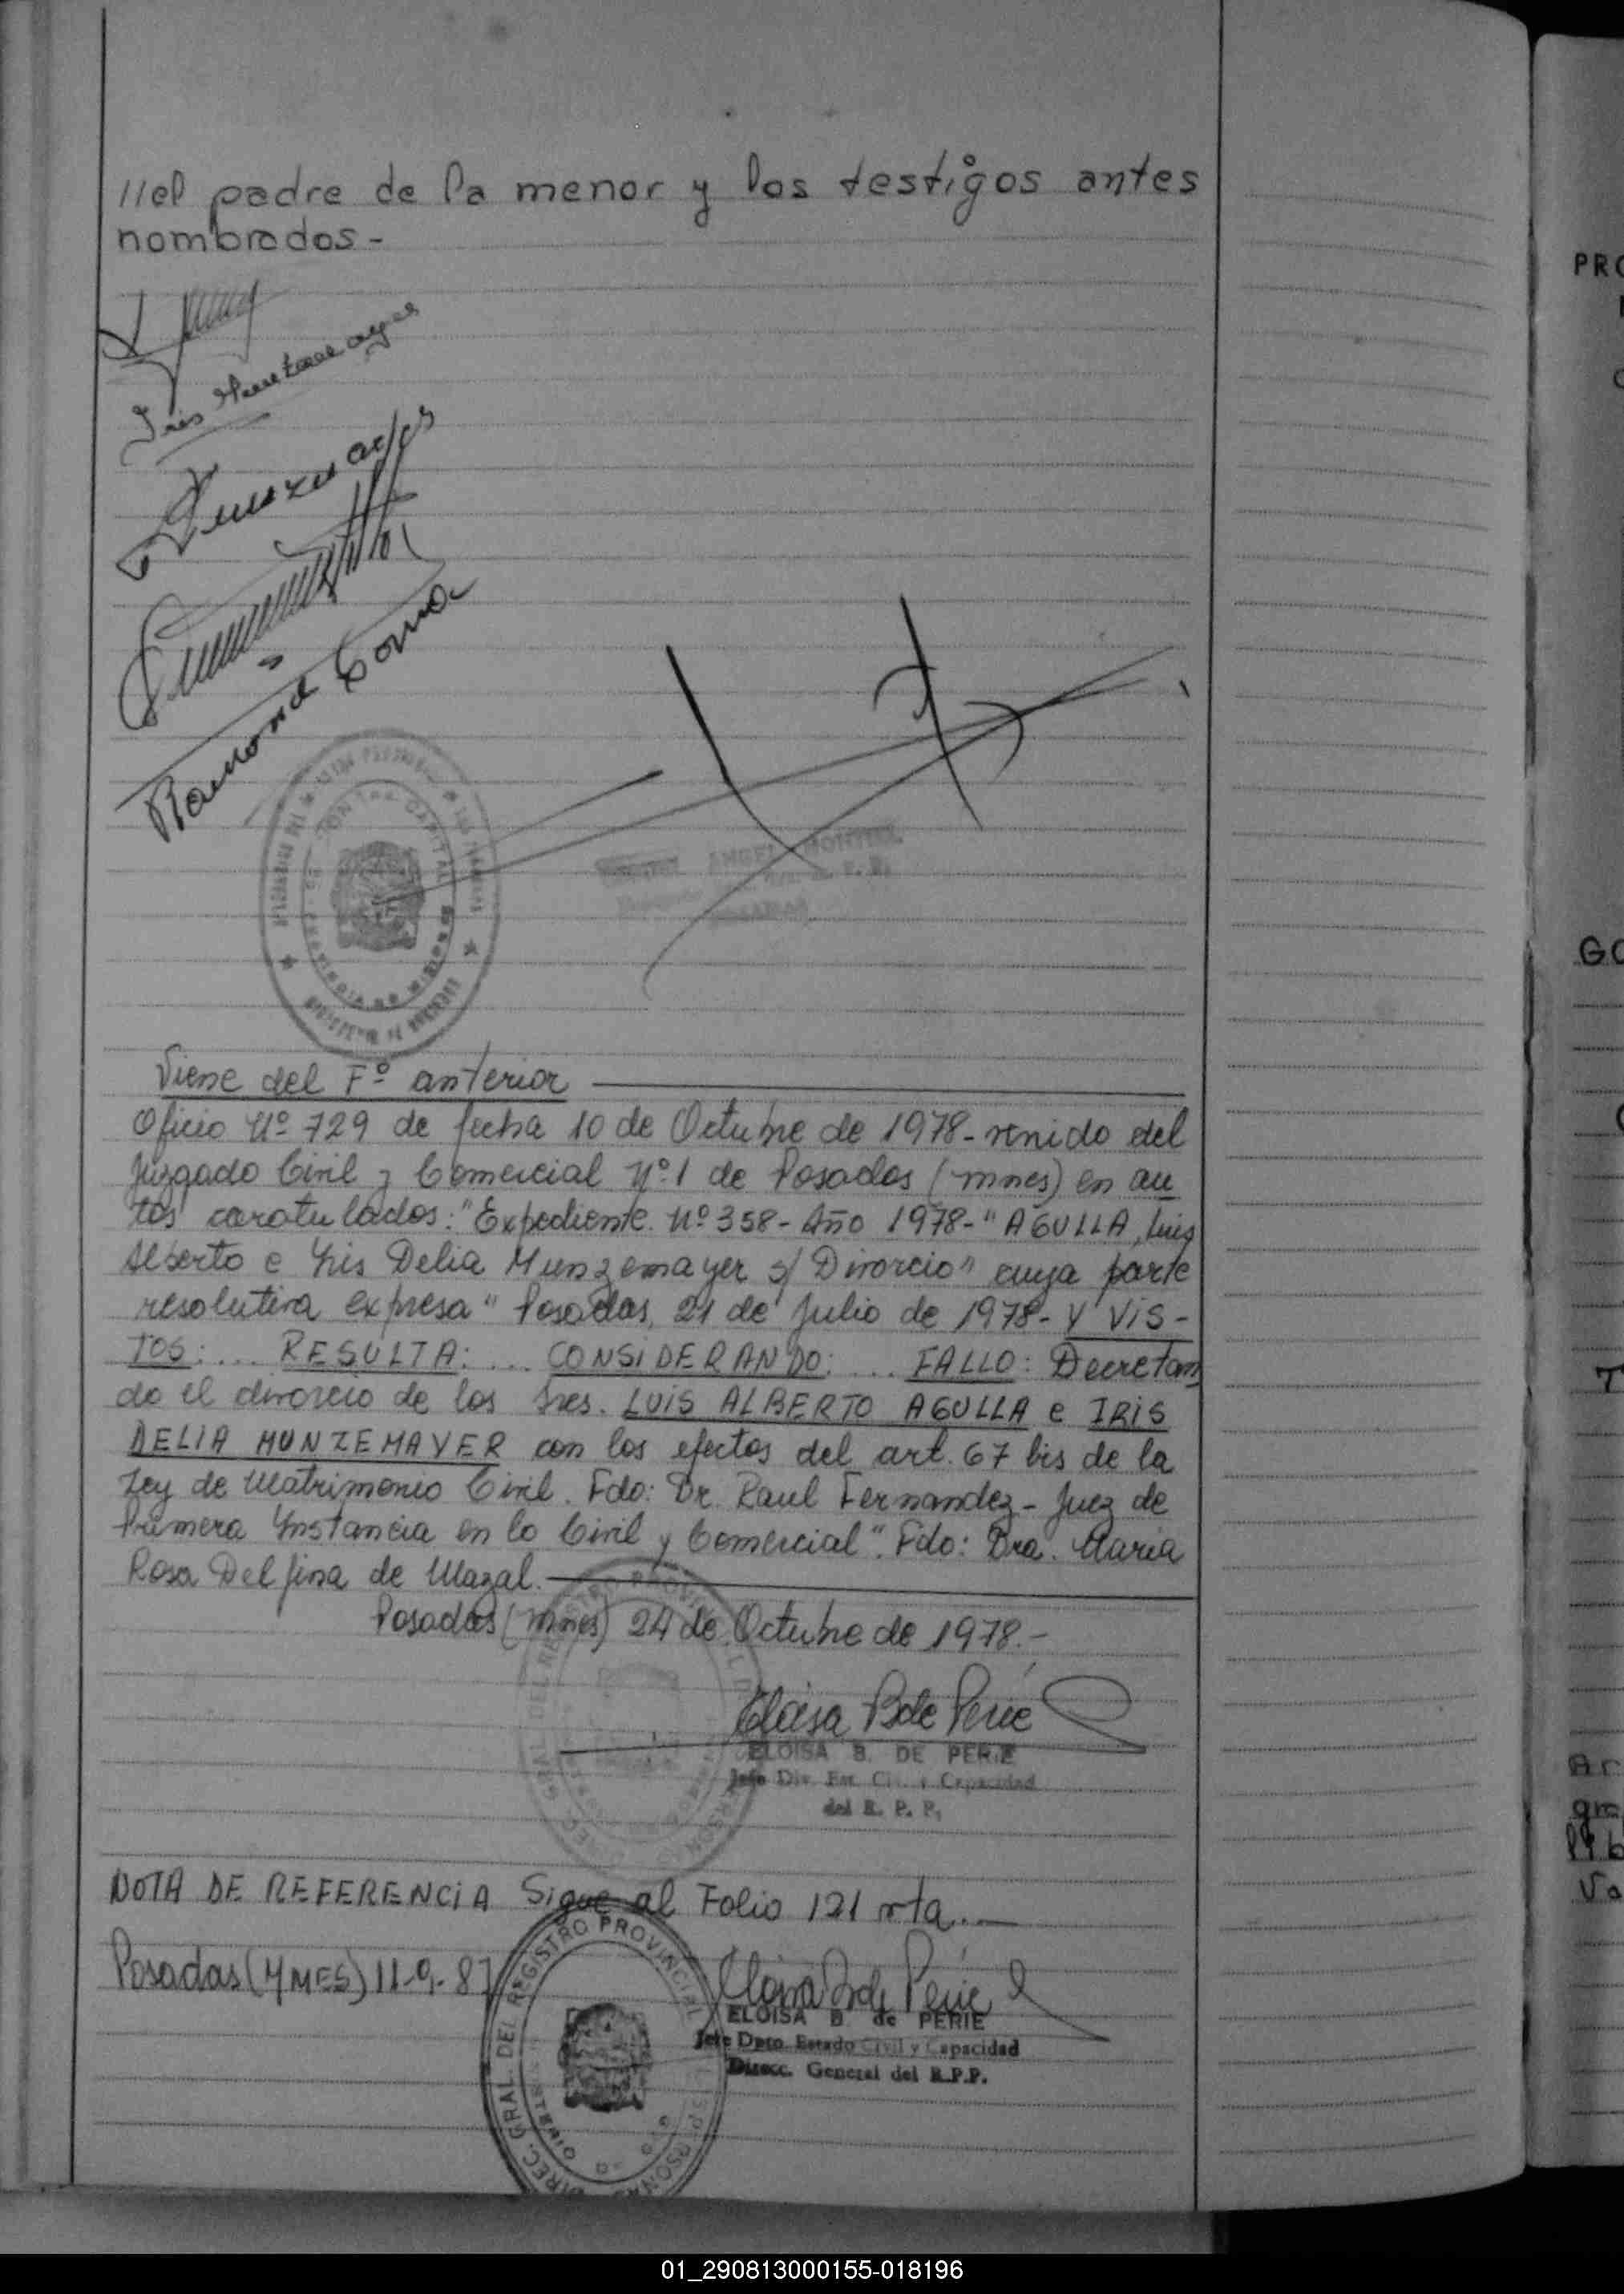 //el padre de la menor y los testigos antes
nombrados-
Iris Munzemayer
Ramona
Viene del Fº anterior
Oficio Nº 729 de fecha 10 de Octubre de 1978- venido del
Juzgado Civil y Comercial Nº1 de Posadas (mnes) en au
tos caratulados: "Expediente. Nº 358- Año 1978- "AGULLA, Luis
Alberto e Iris Delia Munzemayer s/ Divorcio" cuya parte
resolutiva expresa "Posadas, 21 de Julio de 1978- Y VIS-
TOS: ... RESULTA: ... CONSIDERANDO: ... FALLO: Decretan
do el divorcio de los Sres. LUIS ALBERTO AGULLA e IRIS
DELIA MUNZEMAYER con los efectos del art. 67 bis de la
Ley de Matrimonio Civil. Fdo: Dr. Raul Fernandez- Juez de
Primera Instancia en lo Civil y Comercial". Fdo: Dra. Maria
Rosa Delfina de Mazal.
Posadas (mnes) 24 de Octubre de 1978.-
Eloisa B de Perié
ELOISA B. DE PERIE
Jefe Div. Est. Civ. y Capacidad
del R. P. P.
NOTA DE REFERENCIA Sigue al Folio 121 vta.
Posadas (MNES) 11-9-87
Eloisa B de Perié
ELOISA B de PERIE
Jefe Dpto. Estado Civil y Capacidad
Direcc. General del R.P.P.
DIREC. GRAL. DEL REGISTRO PROVINCIAL
01_290813000155-018196